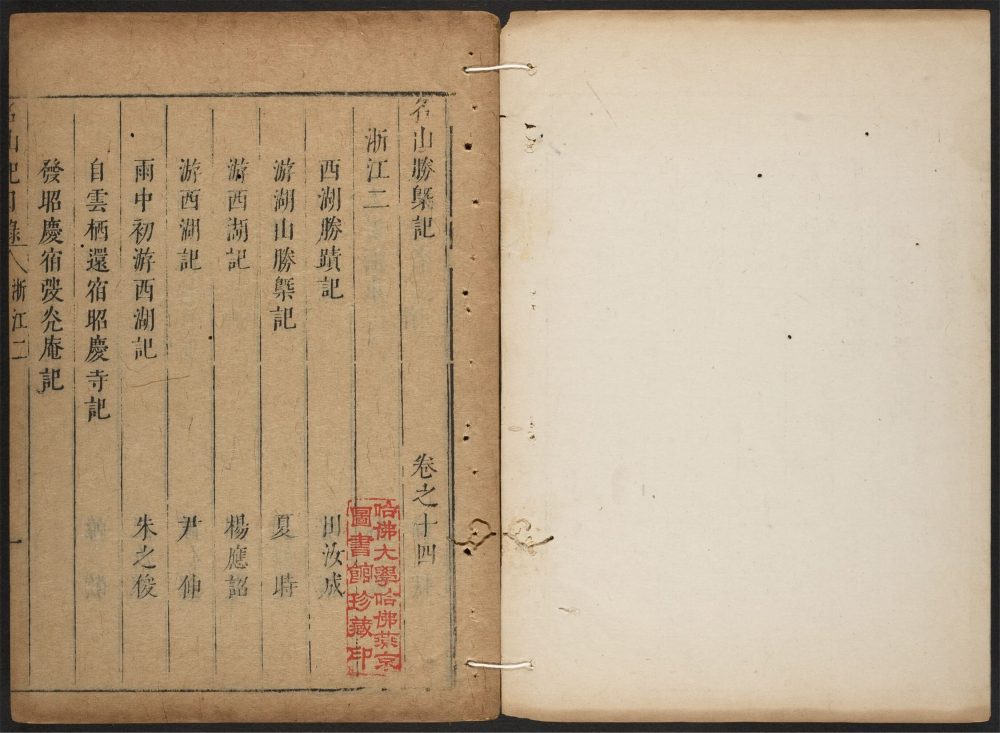 名山勝槩記 卷之十四
浙江二
西湖勝蹟記 田汝成
游湖山勝槩記 夏時
游西湖記 楊應詔
游西湖記 尹伸
雨中初游西湖記 朱之俊
自雲栖還宿昭慶寺記
發昭慶宿發光庵記
名山記目錄 浙江二 一
哈佛大學哈佛燕京
圖書館珍藏印